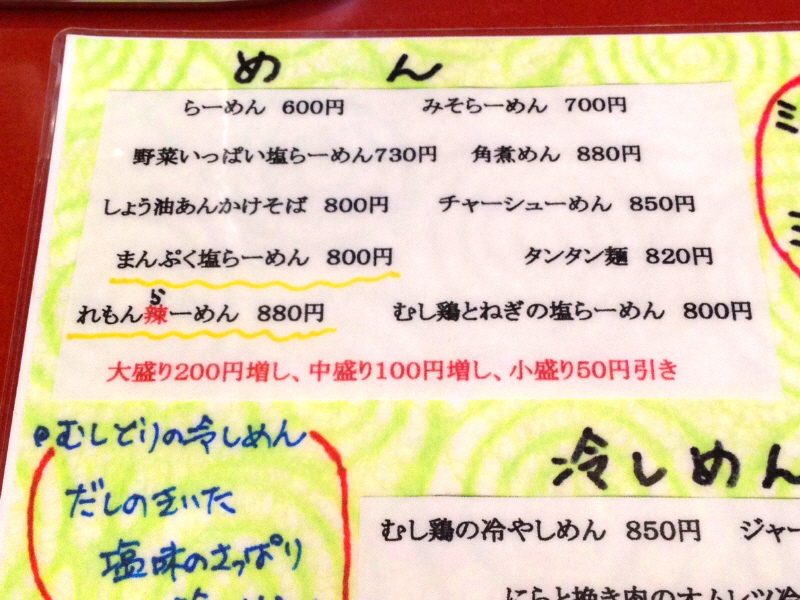 めん
らーめん 600円 みそらーめん 700円
野菜いっぱい塩らーめん730円 角煮めん 880円
しょう油あんかけそば 800円 チャーシューめん 850円
まんぷく塩らーめん 800円 タンタン麺 820円
ら
れもん辣ーめん 880円 むし鶏とねぎの塩らーめん 800円
大盛り200円増し、中盛り100円増し、小盛り50円引き
むしどりの冷しめん
だしのきいた
塩味のさっぱり
冷しめん
むし鶏の冷やしめん 850円 ジャー
にらと挽き肉のオムレツ冷